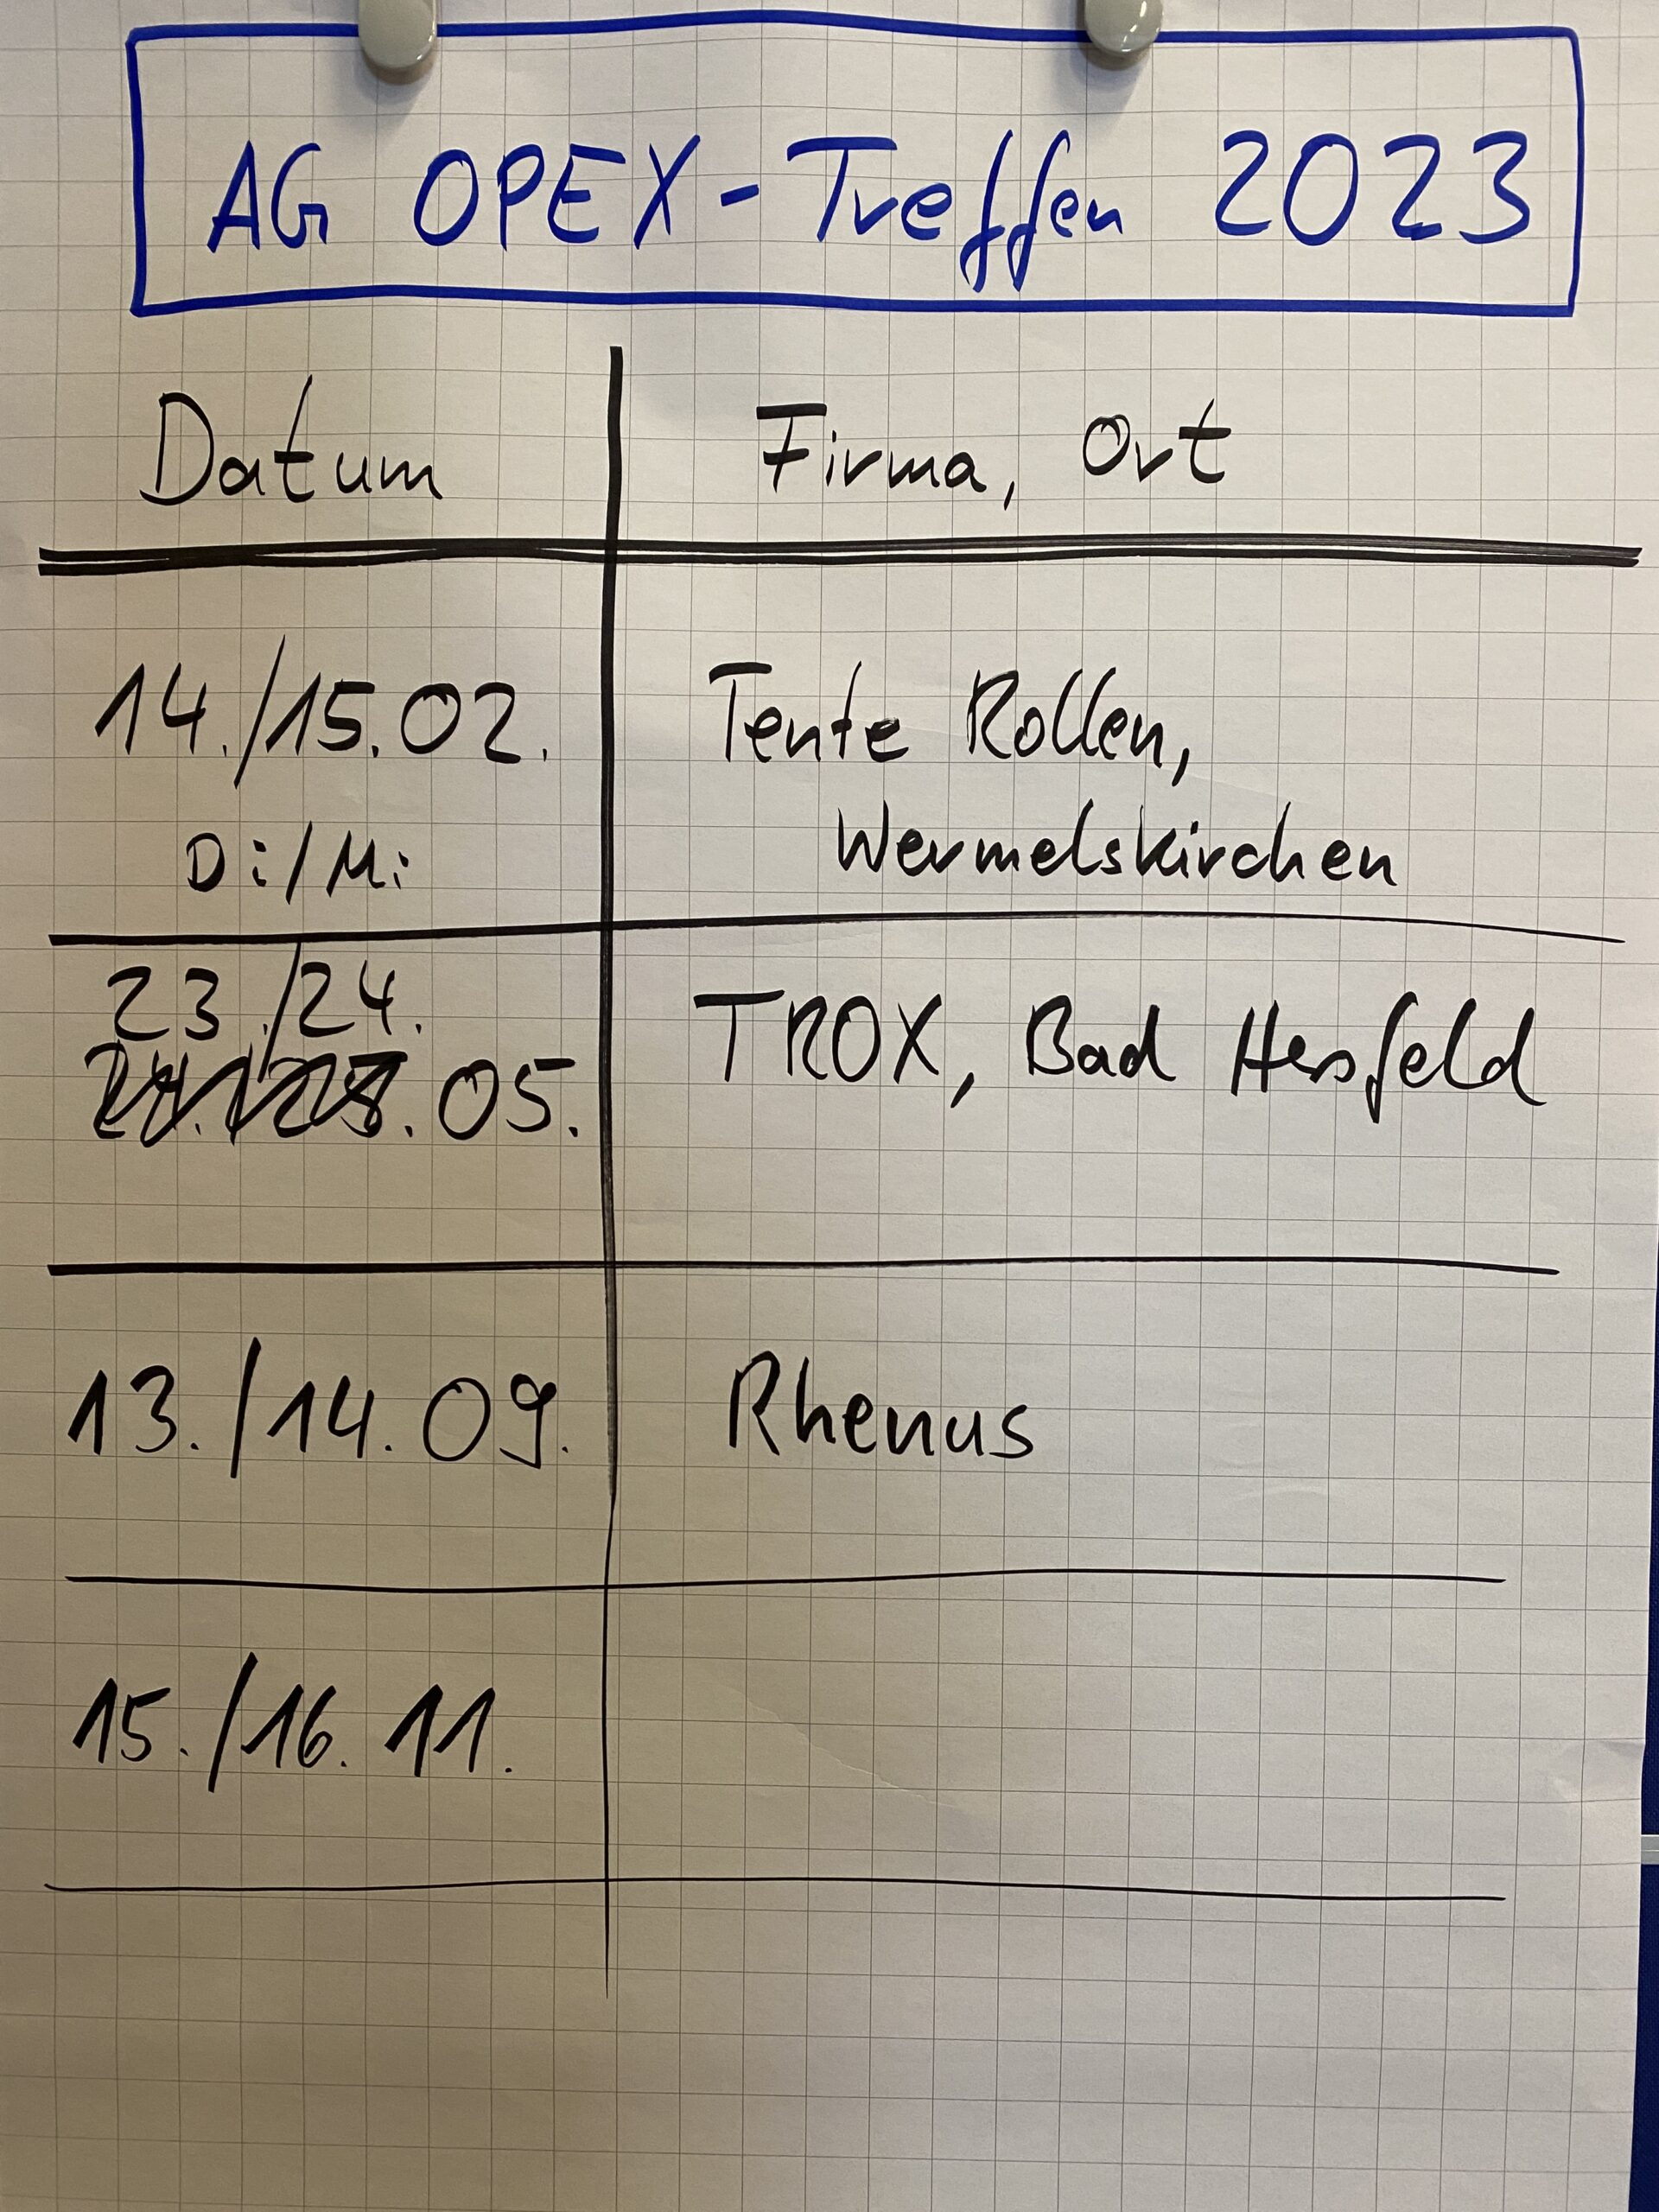 AG OPEX-Treffen 2023
Datum
Firma, Ort
14./15.02.
Tente Rollen,
Di/Mi
Wermelskirchen
23./24.
TROX, Bad Hersfeld
.05.
13./14.09.
Rhenus
15./16.11.